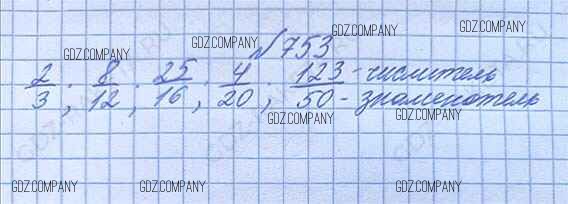 GDZ.COMPANY
GDZ.COMPANY
№ 753
GDZ.COMPANY
GDZ.COMPANY
2/3 ; 8/12 ; 25/16 ; 4/20 ; 123/50 - числитель
- знаменатель
GDZ.COMPANY
GDZ.COMPANY
GDZ.COMPANY
GDZ.COMPANY
GDZ.COMPANY